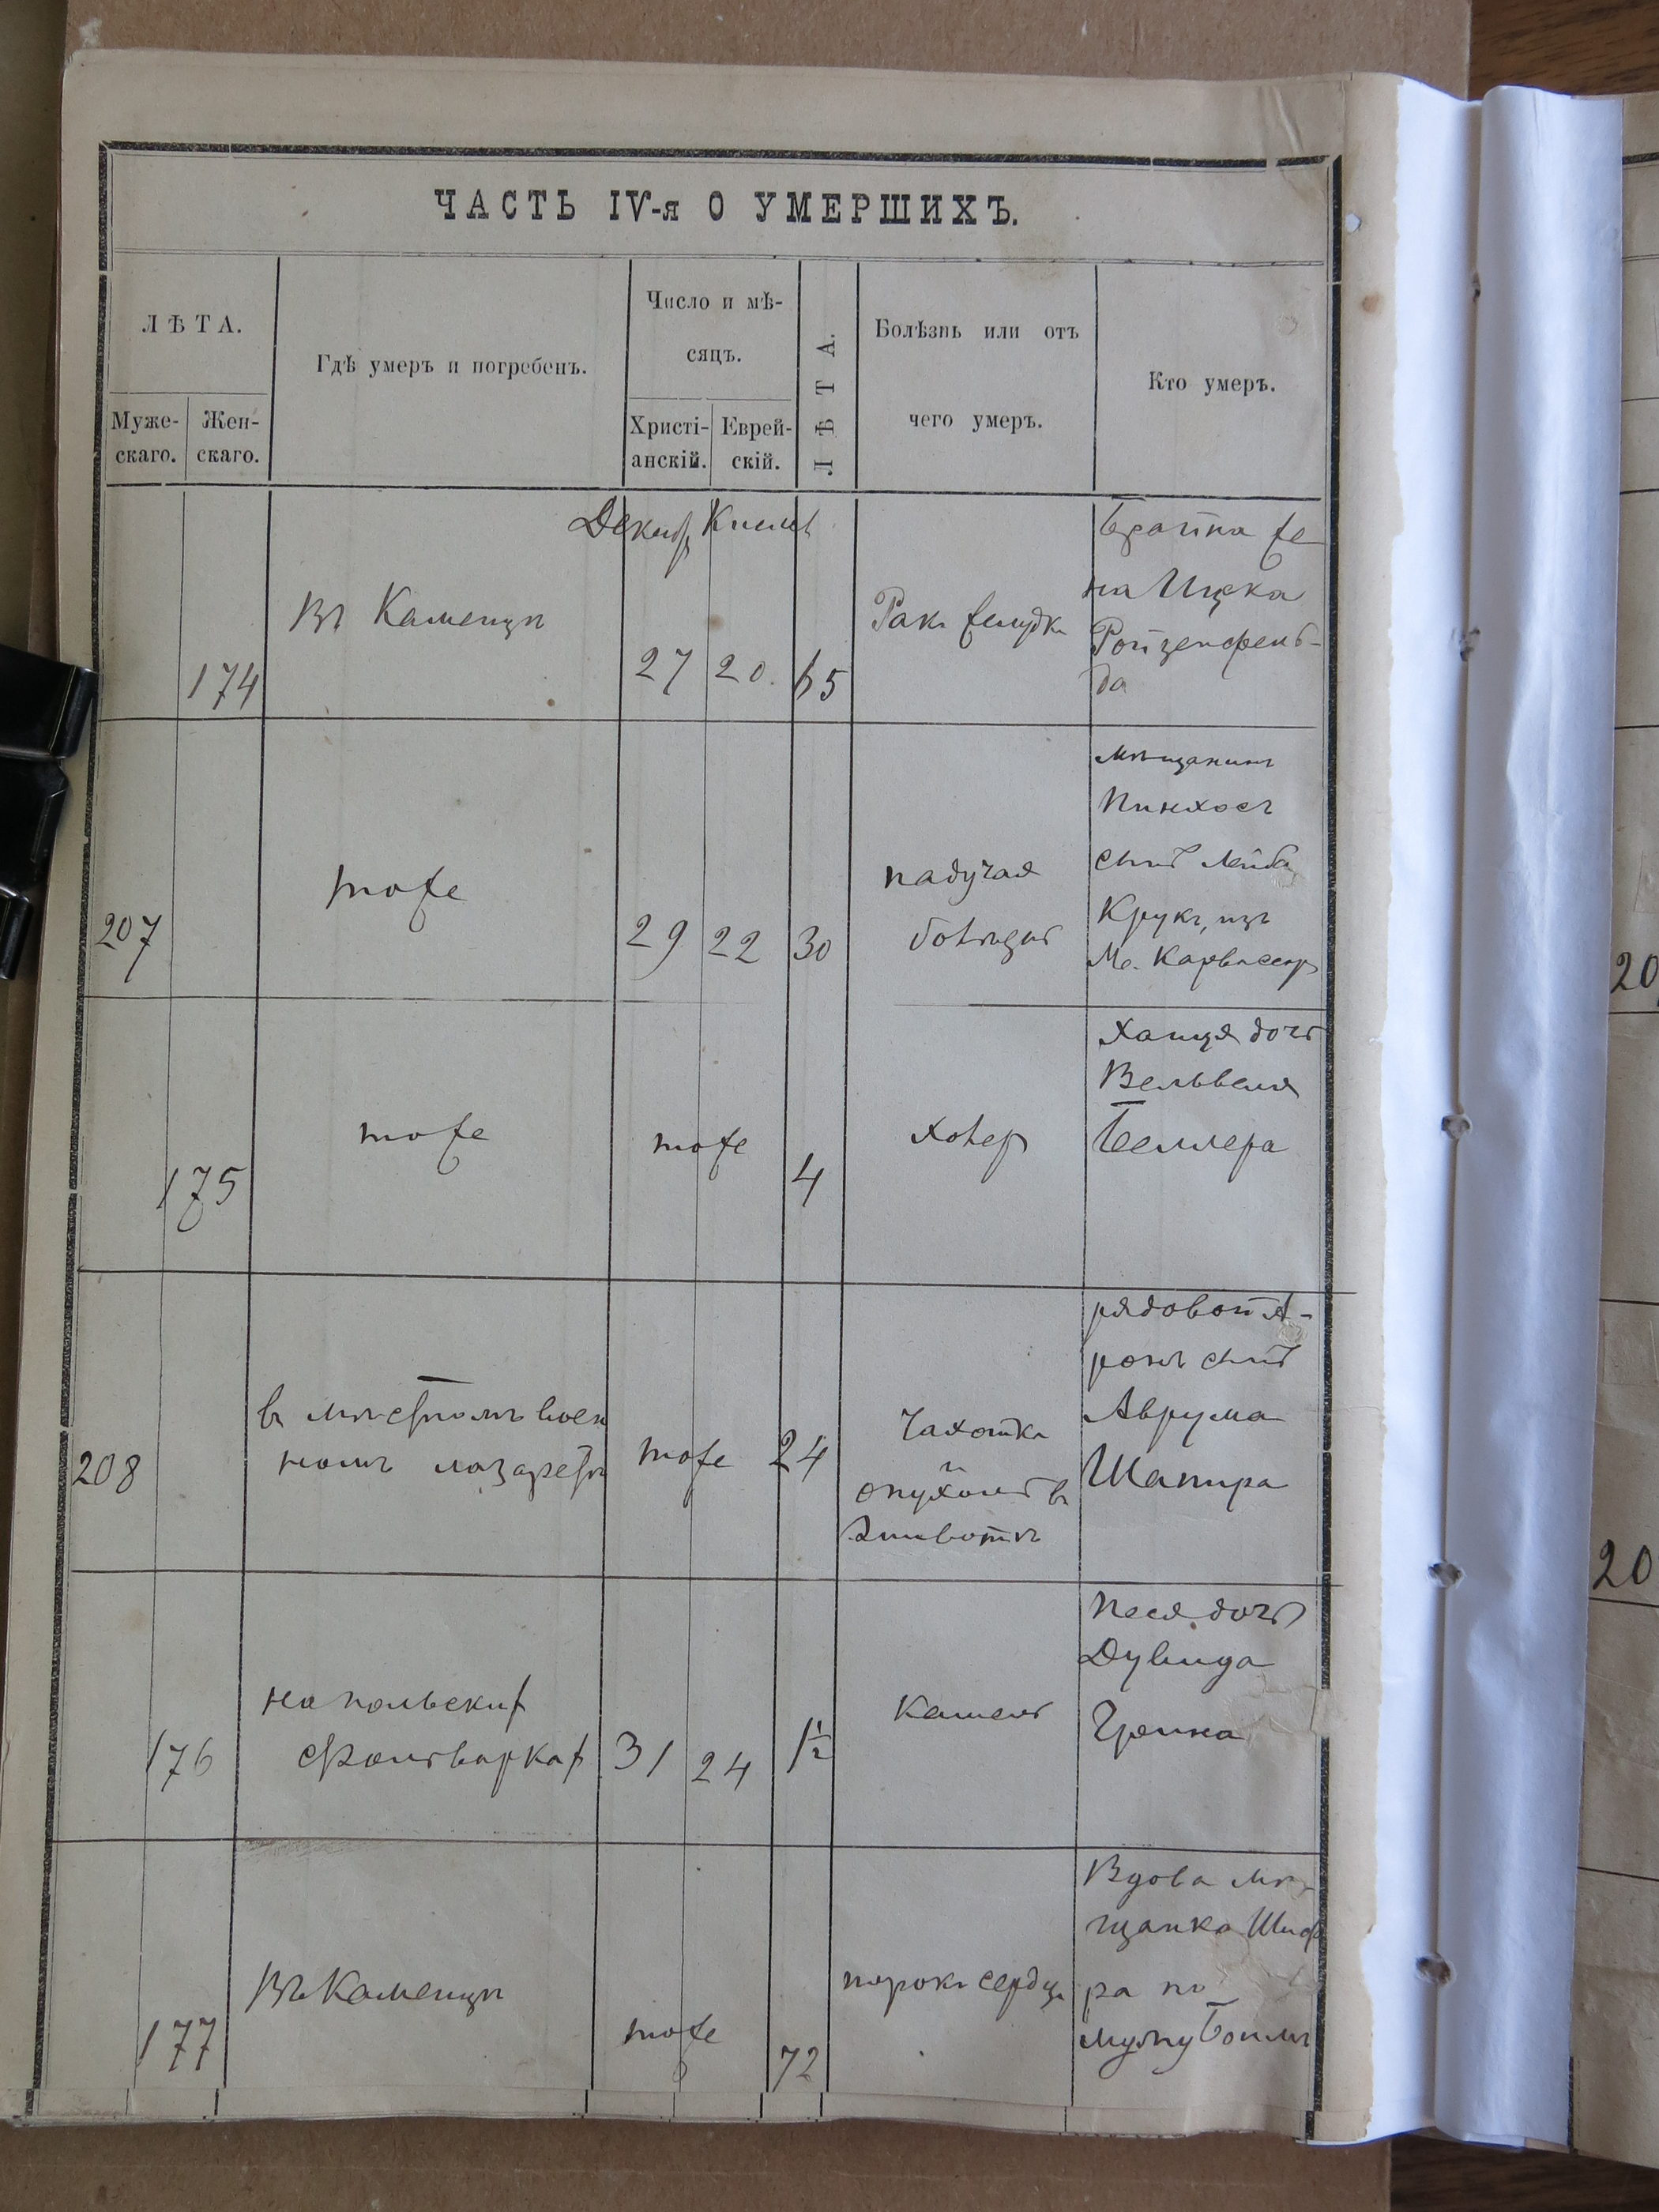 ЧАСТЬ IV-я О УМЕРШИХЪ.
ЛѢТА.
Муже-
скаго.
Жен-
скаго.
Гдѣ умеръ и погребенъ.
Число и мѣ-
сяцъ.
Христі-
анскій.
Еврей-
скій.
ЛѢТА.
Болѣзнь или отъ
чего умеръ.
Кто умеръ.
Декабр Кислев
174
Въ Каменцѣ
27
20.
65
Ракъ желудка
Брайна же
на Ицка
Ройзенфель-
да
207
тоже
29
22
30
падучая
болѣзнь
мѣщанинъ
Пинхосъ
сынъ Лейба
Крукъ, изъ
м. Карвасеръ
175
тоже
тоже
4
Холер
Ханця дочь
Вельвеля
Беллера
208
въ мѣстномъ воен
номъ лазаретѣ
тоже
24
Чахотка
и
опухоль въ
животѣ
рядовой А-
ронъ сынъ
Аврума
Шапира
176
на польских
фольварках
31
24
1½
Кашель
Песя дочь
Дувида
177
Въ Каменцѣ
тоже
72
порокъ сердца
Вдова мѣ-
щанка Шиф
ра по
мужу Боимъ
20
20